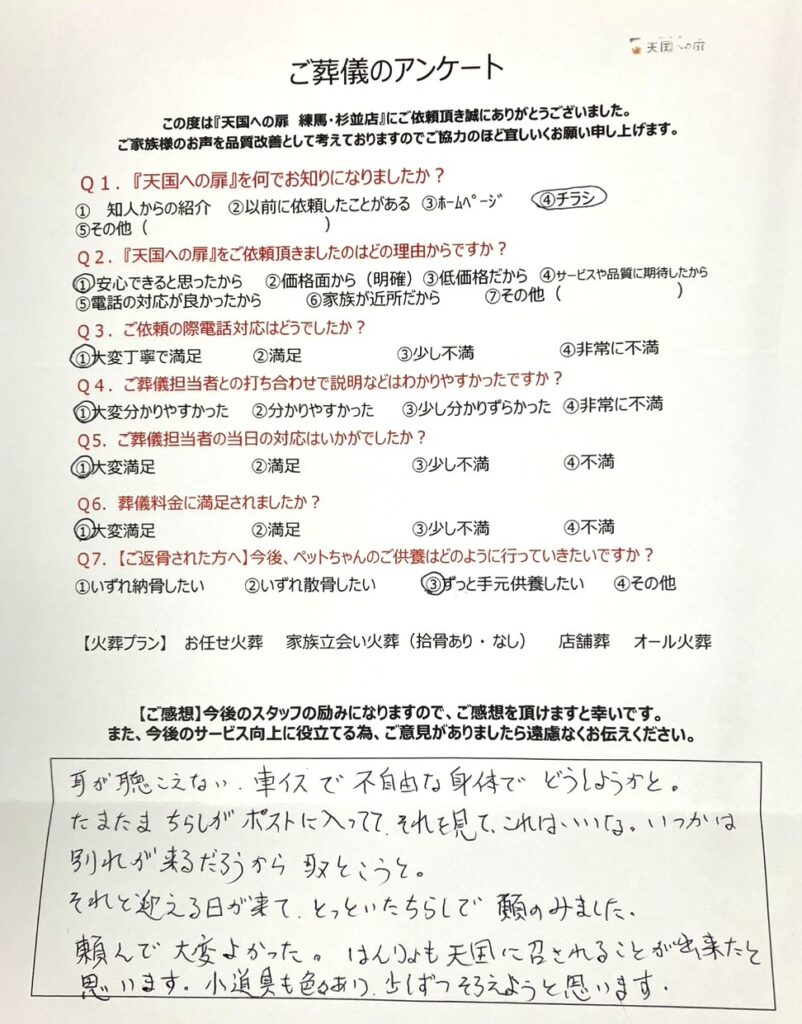 天国への扉
ご葬儀のアンケート
この度は『天国への扉 練馬・杉並店』にご依頼頂き誠にありがとうございました。
ご家族様のお声を品質改善として考えておりますのでご協力のほど宜しいくお願い申し上げます。
Q1.『天国への扉』を何でお知りになりましたか？
① 知人からの紹介 ②以前に依頼したことがある ③ﾎｰﾑﾍﾟｰｼﾞ ④チラシ
⑤その他（ ）
Q2.『天国への扉』をご依頼頂きましたのはどの理由からですか？
①安心できると思ったから ②価格面から（明確）③低価格だから ④サービスや品質に期待したから
⑤電話の対応が良かったから ⑥家族が近所だから ⑦その他（ ）
Q3．ご依頼の際電話対応はどうでしたか？
①大変丁寧で満足 ②満足 ③少し不満 ④非常に不満
Q4．ご葬儀担当者との打ち合わせで説明などはわかりやすかったですか？
①大変分かりやすかった ②分かりやすかった ③少し分かりずらかった ④非常に不満
Q5．ご葬儀担当者の当日の対応はいかがでしたか？
①大変満足 ②満足 ③少し不満 ④不満
Q6．葬儀料金に満足されましたか？
①大変満足 ②満足 ③少し不満 ④不満
Q7．【ご返骨された方へ】今後、ペットちゃんのご供養はどのように行っていきたいですか？
①いずれ納骨したい ②いずれ散骨したい ③ずっと手元供養したい ④その他
【火葬プラン】 お任せ火葬 家族立会い火葬（拾骨あり・なし） 店舗葬 オール火葬
【ご感想】今後のスタッフの励みになりますので、ご感想を頂けますと幸いです。
また、今後のサービス向上に役立てる為、ご意見がありましたら遠慮なくお伝えください。
耳が聴こえない、車イスで不自由な身体でどうしようかと。
たまたまちらしがポストに入ってて、それを見て、これはいいな。いつかは
別れが来るだろうから取とこうと。
それと迎える日が来て、とっといたちらしで頼のみました。
頼んで大変よかった。はんりょも天国に召されることが出来たと
思います。小道具も色々あり、少しずつそろえようと思います。